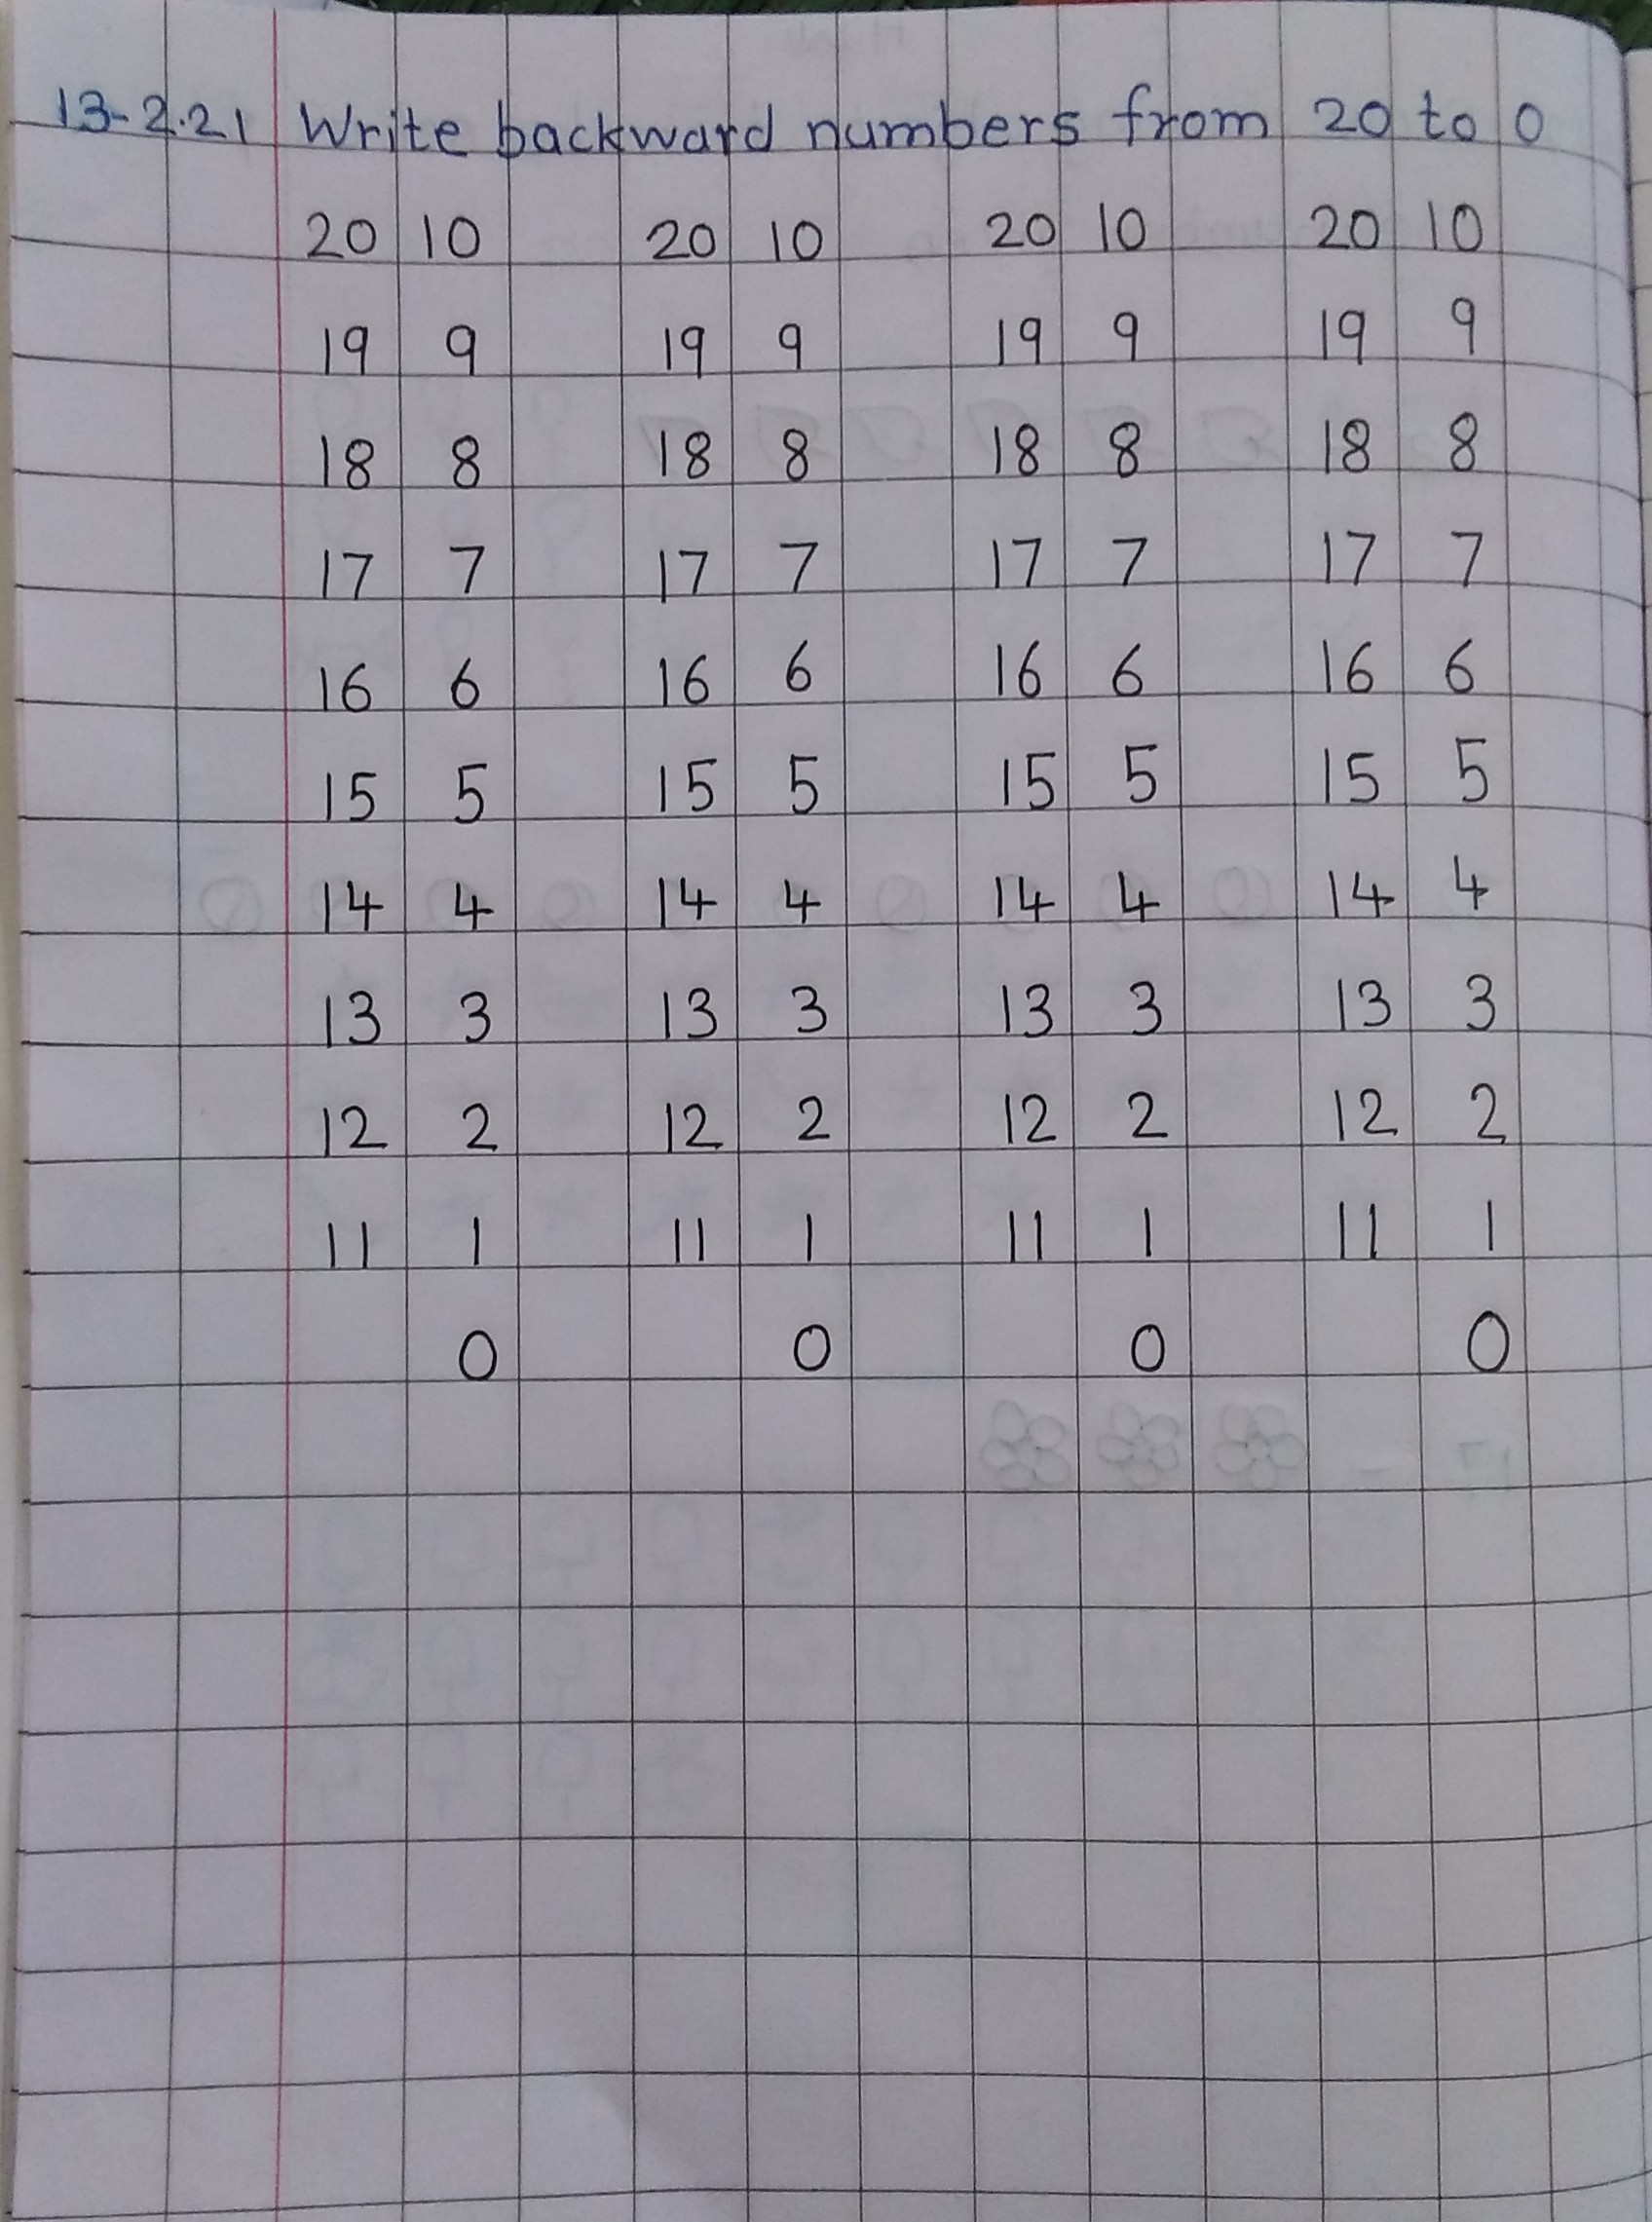 13-2.21 Write backward numbers from 20 to 0
20 10 20 10 20 10 20 10
19 9 19 9 19 9 19 9
18 8 18 8 18 8 18 8
17 7 17 7 17 7 17 7
16 6 16 6 16 6 16 6
15 5 15 5 15 5 15 5
14 4 14 4 14 4 14 4
13 3 13 3 13 3 13 3
12 2 12 2 12 2 12 2
11 1 11 1 11 1 11 1
0 0 0 0